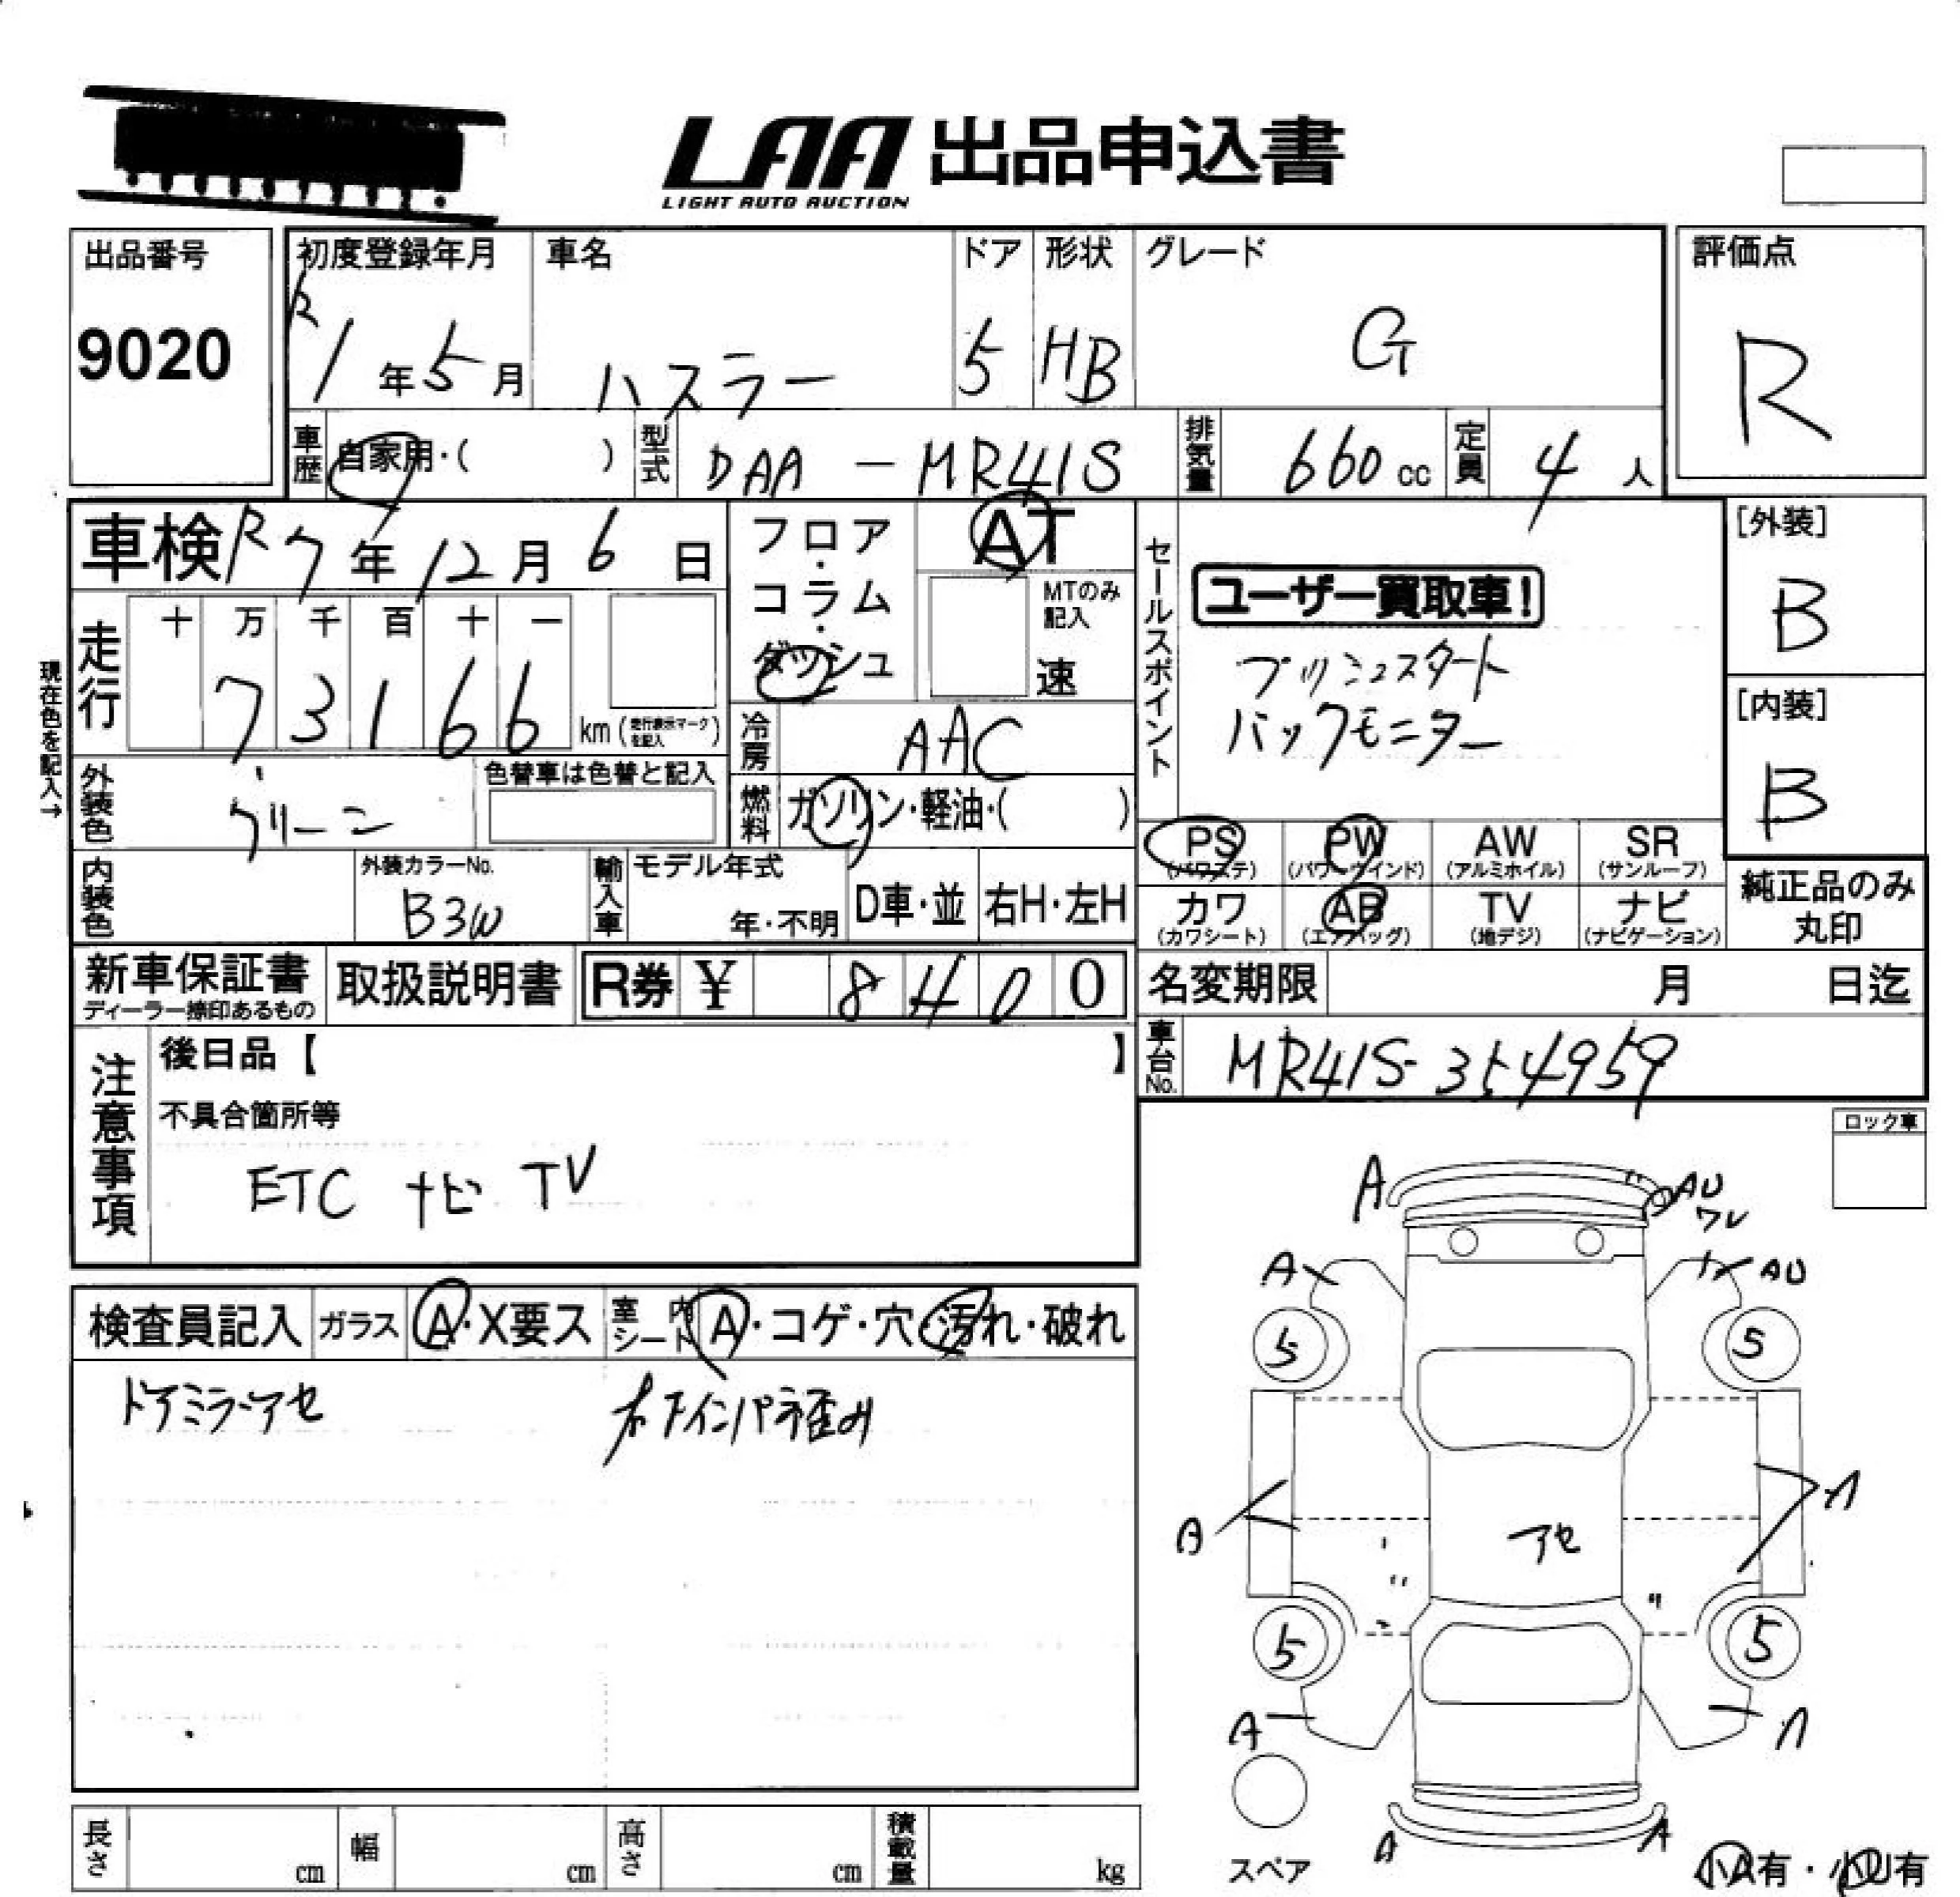 LAA 出品申込書
LIGHT AUTO AUCTION
出品番号
9020
初度登録年月
R1年5月
車名
ハスラー
ドア
5
形状
HB
グレード
G
評価点
R
車歴 自家用・( )
型式 DAA-MR41S
排気量 660cc
定員 4人
車検 R7年12月6日
フロア・コラム・ダッシュ
AT
MTのみ記入
速
セールスポイント
ユーザー買取車!
プッシュスタート
バックモニター
[外装]
B
[内装]
B
現在色を記入→
走行
十 万 千 百 十 一
7 3 1 6 6 km (走行表示マークを記入)
冷房 AAC
外装色 グリーン
色替車は色替と記入
燃料 ガソリン・軽油・( )
PS (パワステ)
PW (パワーウインド)
AW (アルミホイル)
SR (サンルーフ)
内装色
外装カラーNo.
B3W
輸入車
モデル年式
年・不明
D車・並
右H・左H
カワ (カワシート)
AB (エアバッグ)
TV (地デジ)
ナビ (ナビゲーション)
純正品のみ丸印
新車保証書
ディーラー捺印あるもの
取扱説明書
R券 ¥ 8 4 0 0
名変期限 月 日迄
車台No. MR41S-354959
注意事項
後日品【 】
不具合箇所等
ETC ナビ TV
ロック車
検査員記入
ガラス A・X要ス
室内シート A・コゲ・穴・汚れ・破れ
ドアミラーアセ
A
AU
ワレ
A
AU
5
5
A
アセ
5
5
A
A
A
スペア
小A有・小U有
長さ cm
幅 cm
高さ cm
積載量 kg